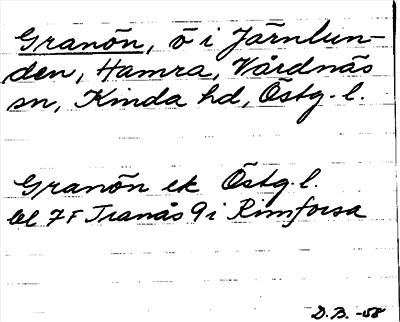 Granön, ö i Järnlun-
den, Hamra, Vårdnäs
sn, Kinda hd, Östg. l.
Granön ek Östg. l.
bl 7F Tranås 9 i Rimforsa
D.B. -58